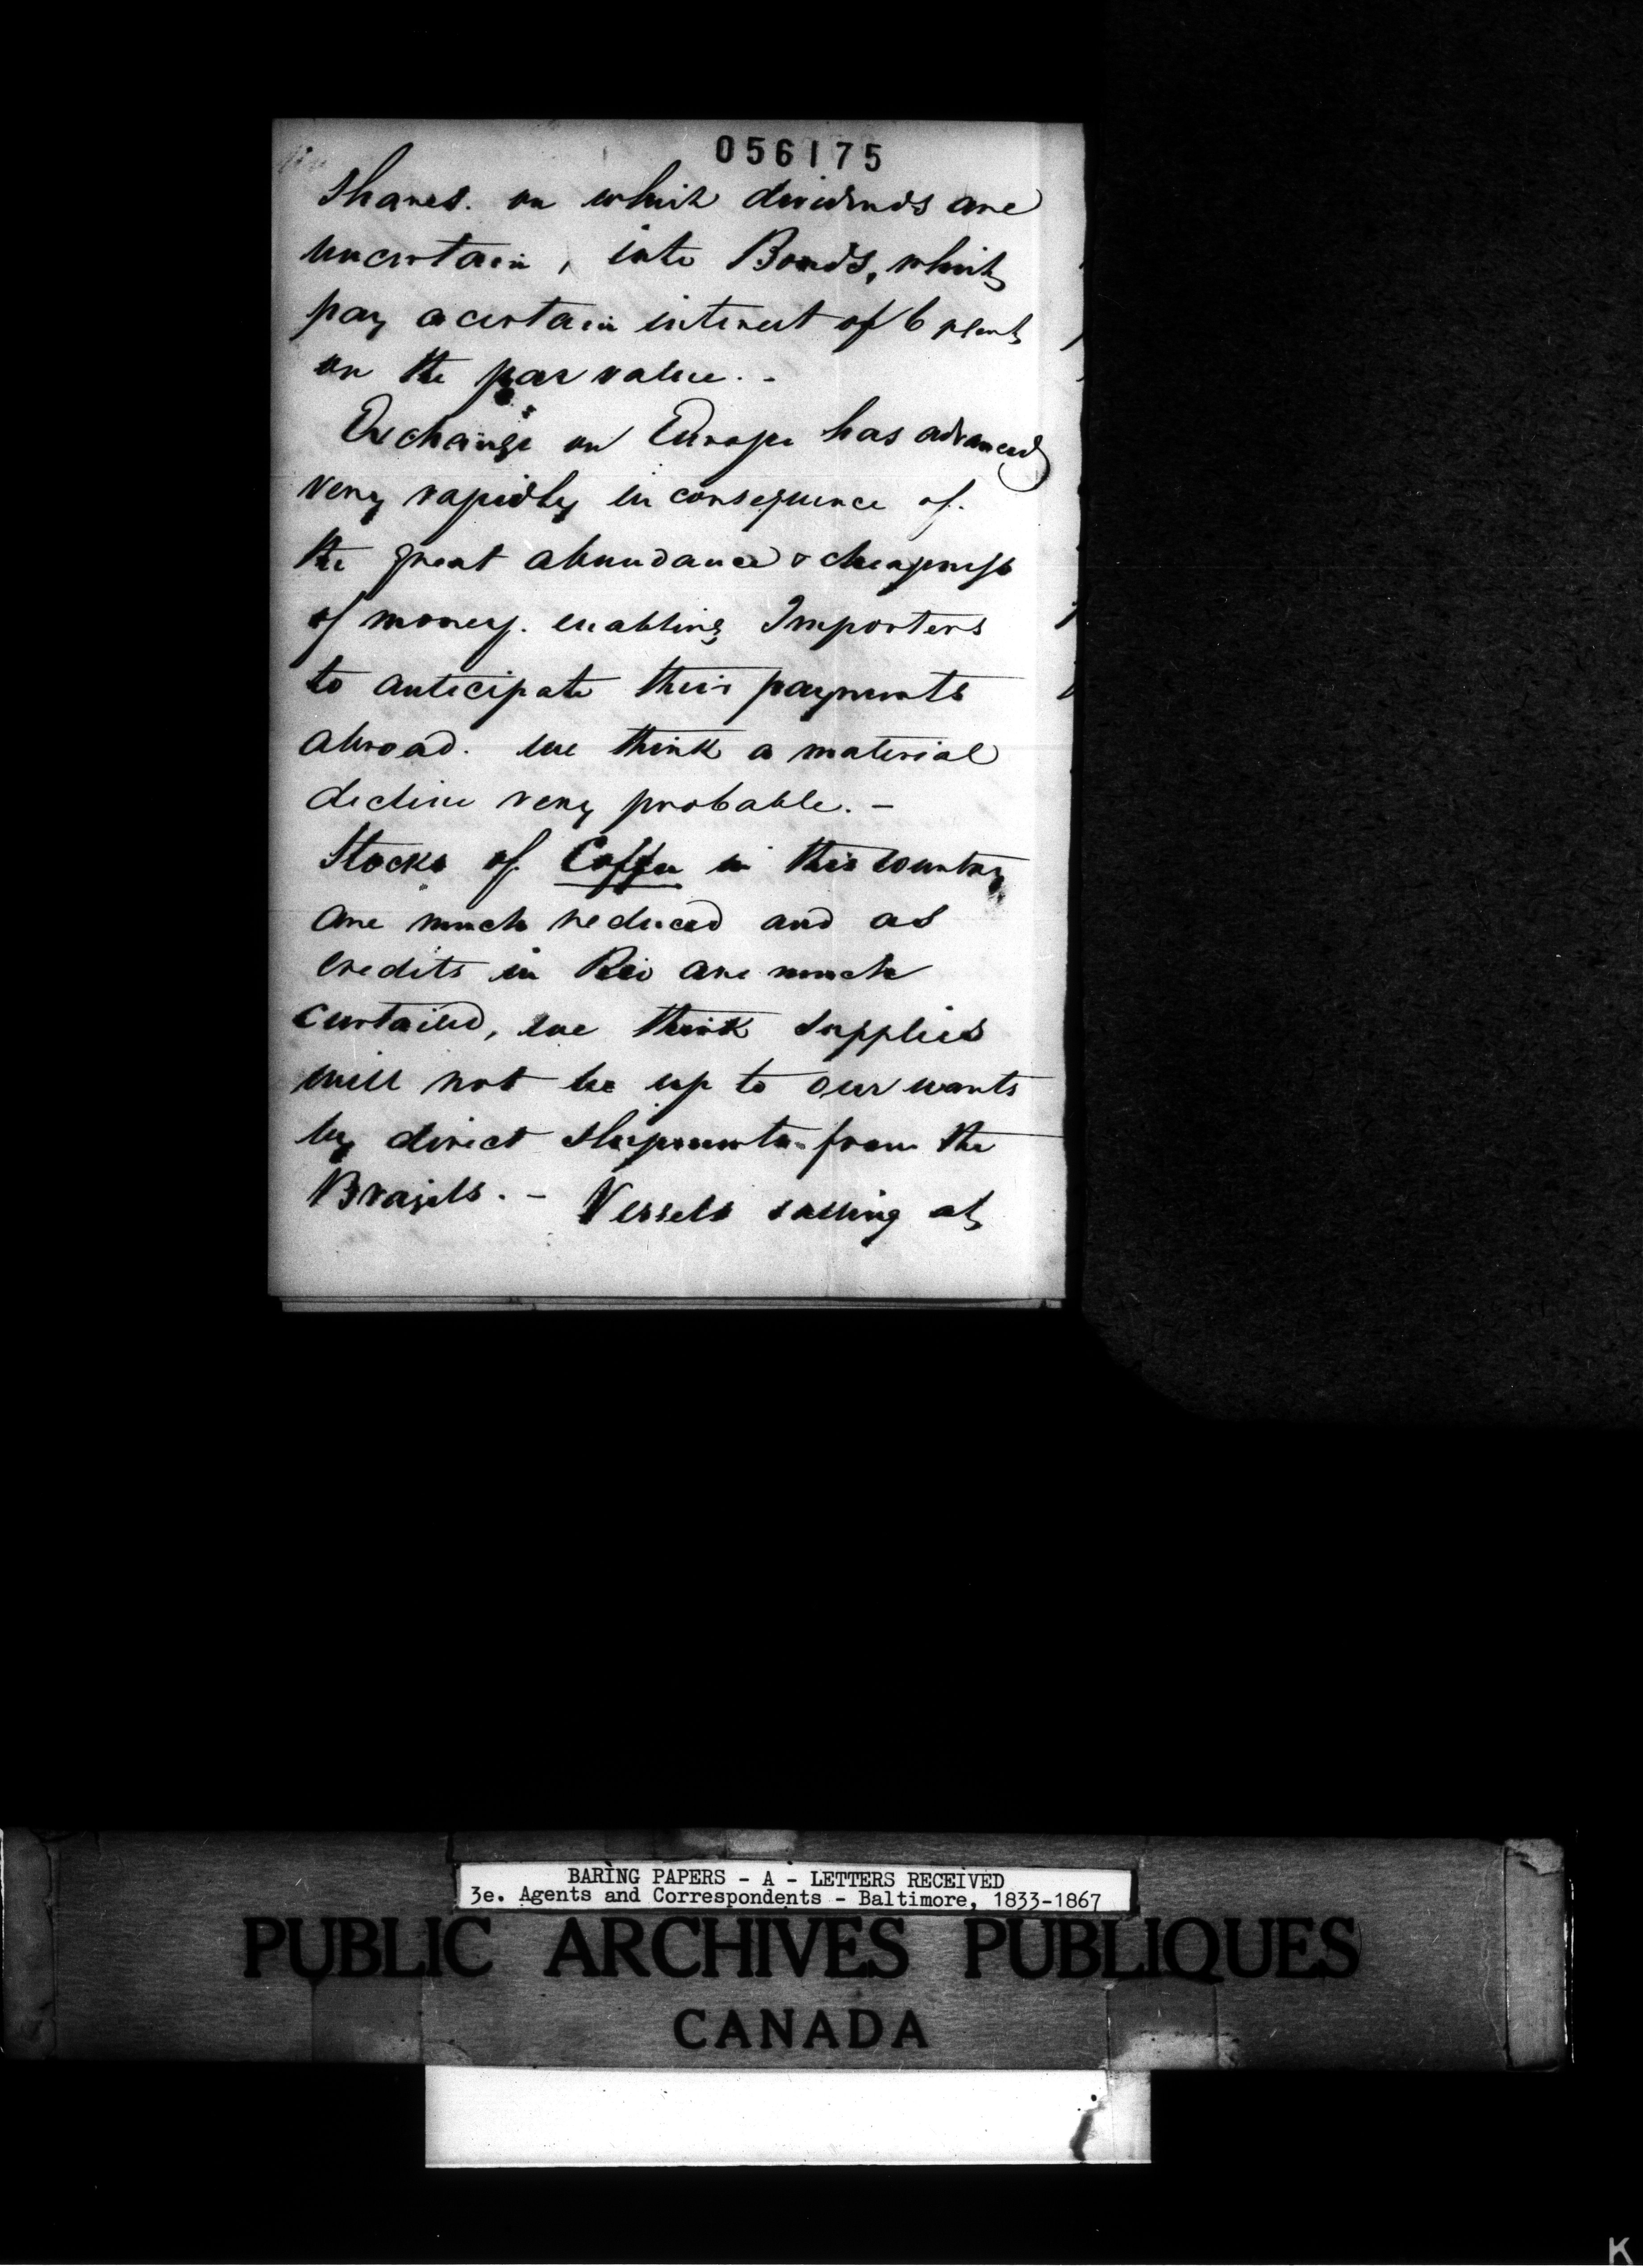 056175
Shares. on which dividends are
uncertain, into Bonds, which
pay a certain interest of 6 pCent
on the par value. -
Exchange on Europe has advanced
very rapidly in consequence of.
the great abundance & cheapness
of money. enabling Importers
to anticipate their payments
abroad. we think a material
decline very probable. -
Stocks of Coffee in this country
are much reduced and as
credits in Rio are much
curtailed, we think supplies
will not be up to our wants
by direct shipments from the
Brazils. - Vessels sailing at
BARING PAPERS - A - LETTERS RECEIVED
3e. Agents and Correspondents - Baltimore, 1833-1867
PUBLIC ARCHIVES PUBLIQUES
CANADA
K